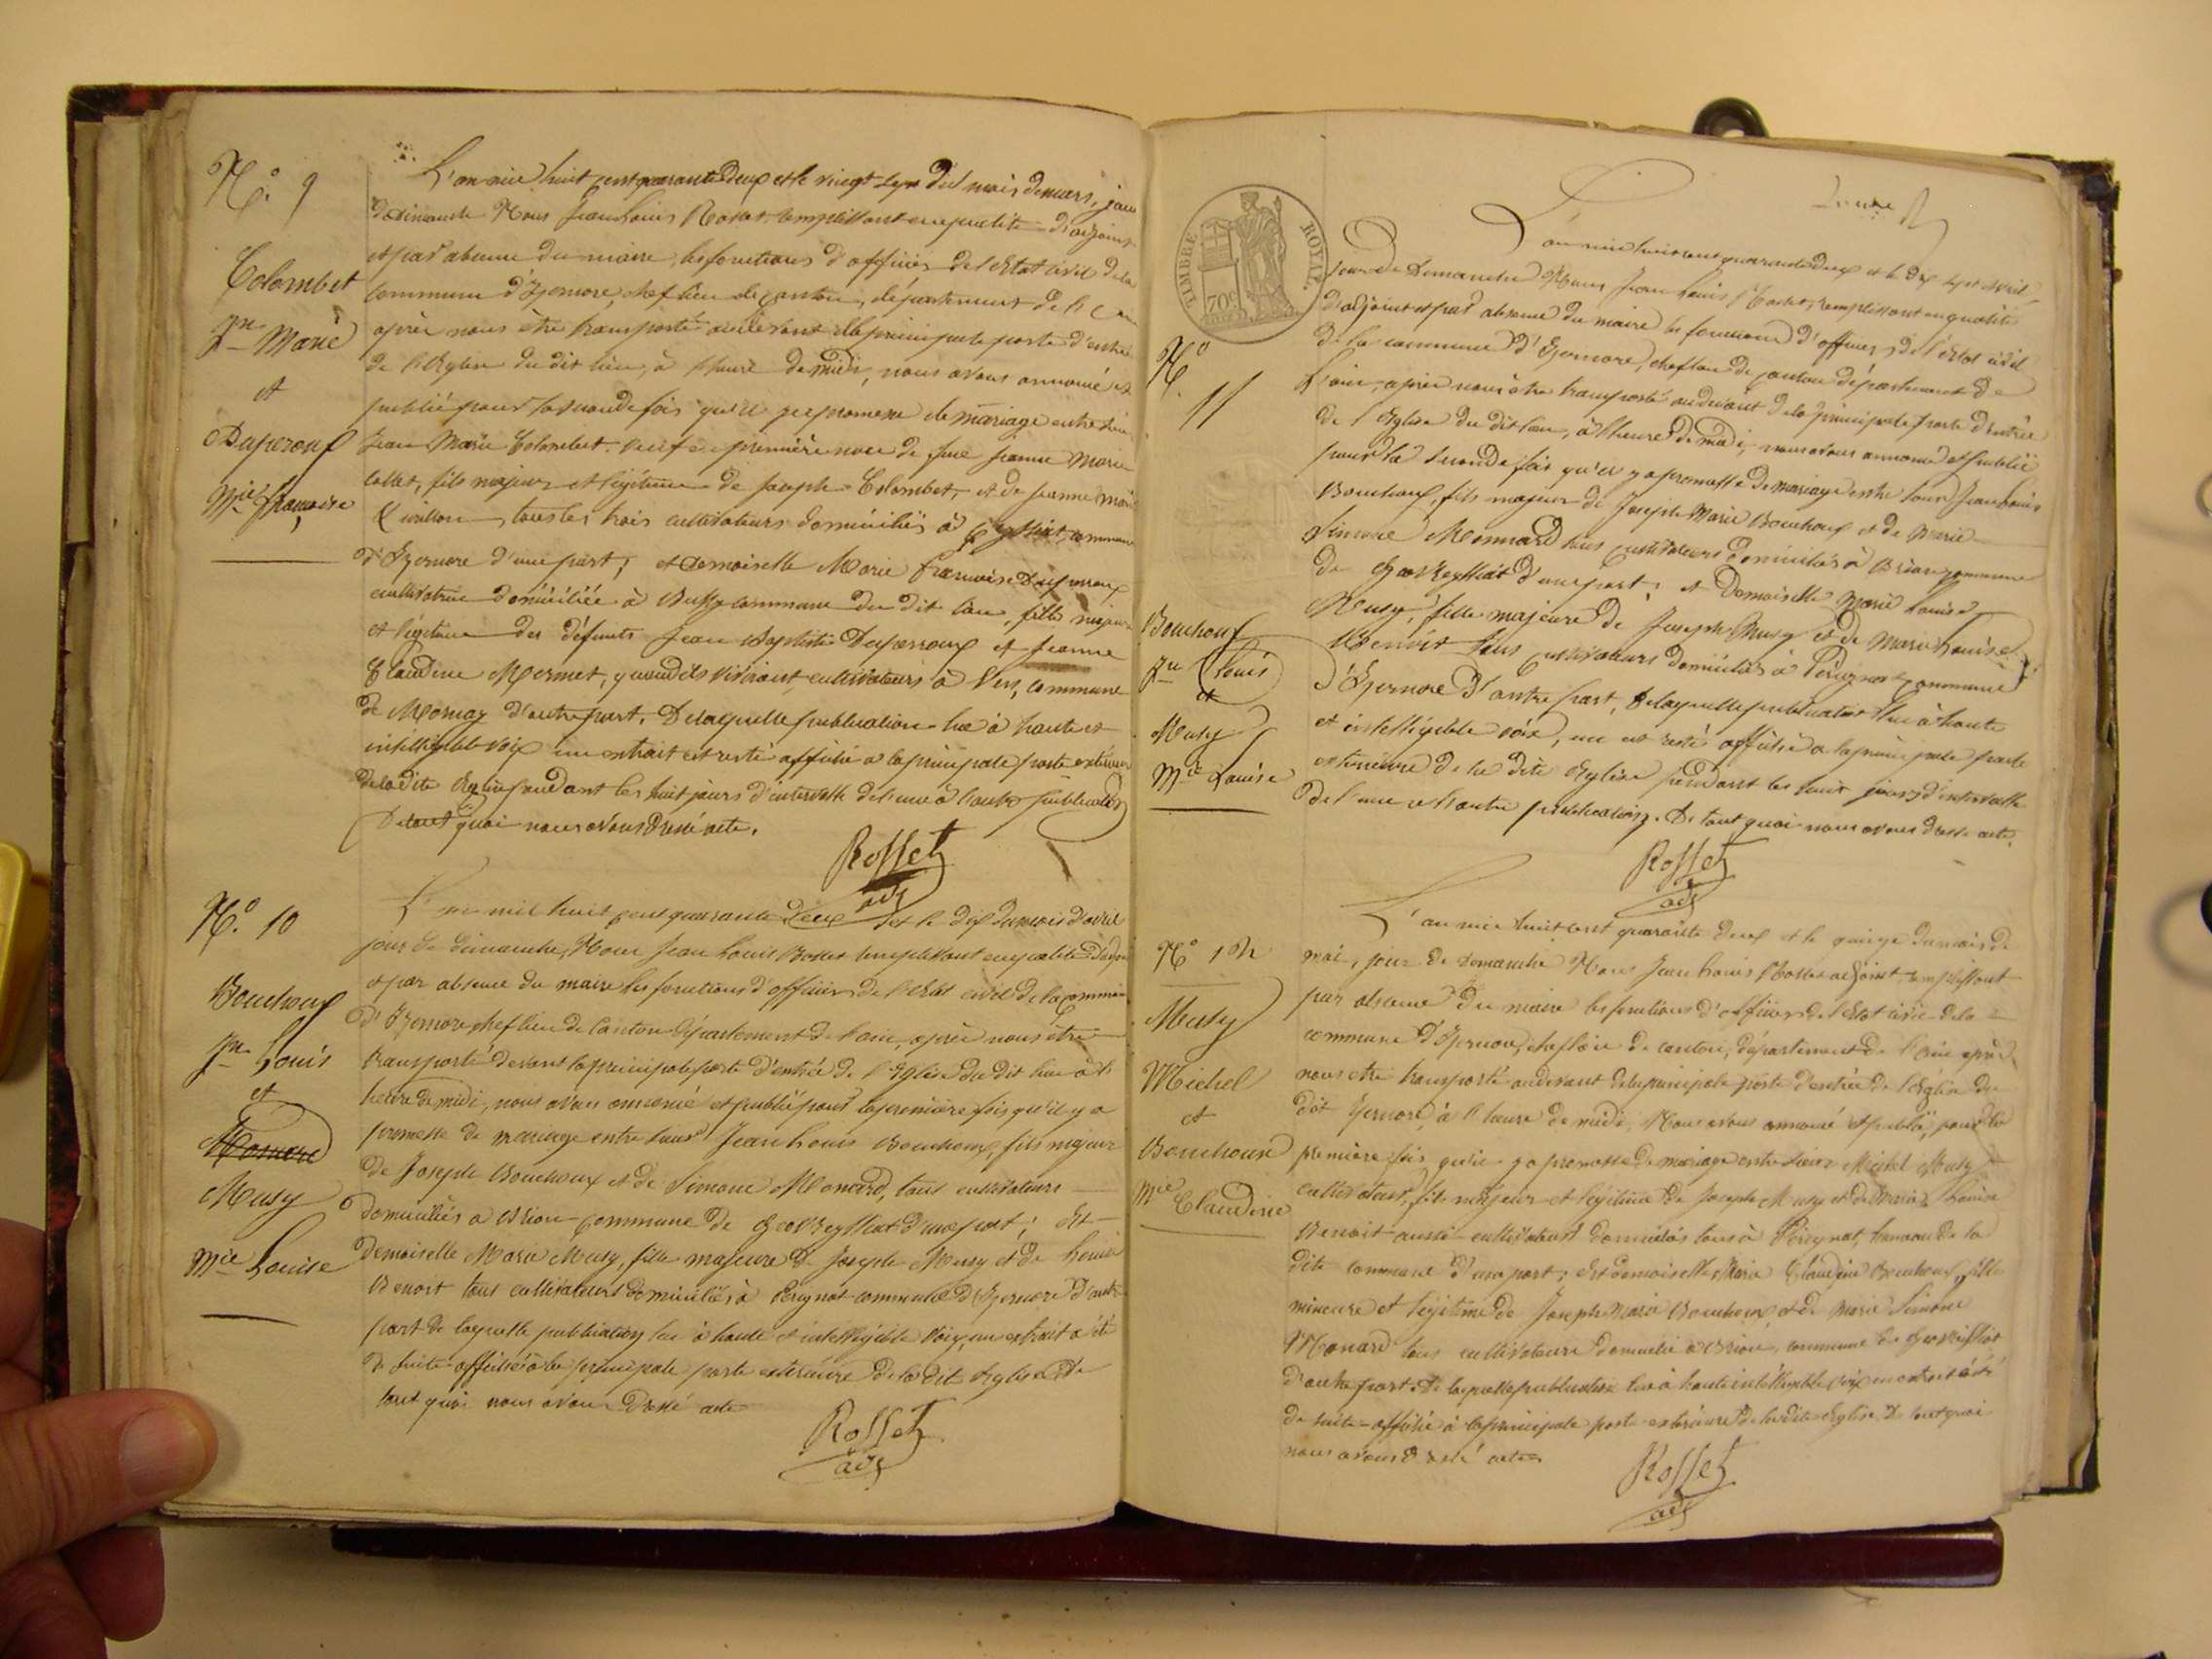 N.° 9
Colombet
Jn Marie
et
Duperouf
Mie françoise
L'an mil huit cent quarante deux et le vingt sept du mois de mars, jour
de dimanche Nous Jean Louis Rosset remplissant en qualité d'adjoint
et par absence du maire, les fonctions d'officier de l'Etat civil de la
commune d'Izernore, chef lieu de canton, département de l'ain
après nous être transporté au devant de la principale porte d'entrée
de l'Eglise du dit lieu, à l'heure de midi, nous avons annoncé et
publié pour la seconde fois qu'il y a promesse de mariage entre sieur
Jean Marie Colombet veuf en première noce de feue jeanne Marie
fils majeur et légitime de Joseph Colombet, et de jeanne marie
tous les trois cultivateurs domiciliés à commune
d'Izernore d'une part; et demoiselle Marie françoise Duperroux
cultivatrice domiciliée à Bussy commune du dit lieu, fille majeure
et légitime des défunts Jean Baptiste Duperroux et Jeanne
Claudine Mermet, quand ils vivaient cultivateurs à Vers, commune
de Mornay d'autre part. De laquelle publication lue à haute et
intelligible voix un extrait est resté affiché à la principale porte extérieure
de la dite Eglise pendant les huit jours d'intervalle de l'une à l'autre publication
De tout quoi nous avons dressé acte.
Rosset
adj
N.° 10
Bouchoux
Jn Louis
et
Monard
Musy
Mie Louise
L'an mil huit cent quarante deux et le dix du mois d'avril
jour de dimanche, Nous Jean Louis Rosset remplissant en qualité d'adjoint
et par absence du maire les fonctions d'officier de l'Etat civil de la commune
d'Izernore chef lieu de Canton département de l'ain, après nous être
transporté devant la principale porte d'entrée de l'Eglise du dit lieu à l'
heure de midi, nous avons annoncé et publié pour la première fois qu'il y a
promesse de mariage entre sieur Jean Louis Bouchoux, fils majeur
de Joseph Bouchoux et de Simone Monard, tous cultivateurs
domiciliés à Brion commune de Geovreyssiat d'une part; Et
demoiselle Marie Musy, fille majeure de Joseph Musy et de Louise
Benoit tous cultivateurs domiciliés à Perignat commune d'Izernore d'autre
part de laquelle publication lue à haute et intelligible voix, un extrait a été
de suite affiché à la principale porte extérieure de la dite Eglise De
tout quoi nous avons dressé acte
Rosset
adj
TIMBRE ROYAL
70c
N.°
11
Bouchoux
Jn Louis
et
Musy
Mie Louise
L'an mil huit cent quarante deux et le dix sept avril
jour de Dimanche Nous Jean Louis Rosset, remplissant en qualité
d'adjoint et par absence du maire les fonctions d'officier de l'Etat civil
de la commune d'Izernore, chef lieu de canton département de
l'ain, après nous être transporté au devant de la principale porte d'entrée
de l'Eglise du dit lieu, à l'heure de midi, nous avons annoncé et publié
pour la seconde fois qu'il y a promesse de mariage entre sieur Jean Louis
Bouchoux, fils majeur de Joseph Marie Bouchoux et de Marie
Simone Monnard tous cultivateurs domiciliés à Brion commune
de Geovreyssiat d'une part; et Demoiselle Marie Louise
Musy, fille majeure de Joseph Musy et de Marie Louise
Benoit tous cultivateurs domiciliés à Pérignat commune
d'Izernore d'autre part, de laquelle publication lue à haute
et intelligible voix, un est resté affiché à la principale porte
extérieure de la dite Eglise pendant les huit jours d'intervalle
de l'une à l'autre publication. De tout quoi nous avons dressé acte.
Rosset
adj
N° 12
Musy
Michel
et
Bouchoux
Mie Claudine
L'an mil huit cent quarante deux et le quinze du mois de
mai, jour de dimanche Nous Jean Louis Rosset adjoint remplissant
par absence du maire les fonctions d'officier de l'Etat civil de la
commune d'Izernore, chef lieu de canton, département de l'Ain après
nous être transporté au devant de la principale porte d'entrée de l'Eglise du
dit Izernore, à l'heure de midi, Nous avons annoncé et publié, pour la
première fois qu'il y a promesse de mariage entre sieur Michel Musy
cultivateur, fils majeur et légitime de Joseph Musy et de Marie Louise
Benoit aussi cultivateurs domiciliés tous à Pérignat, hameau de la
dite commune d'une part; Et demoiselle Marie Claudine Bouchoux, fille
mineure et légitime de Joseph Marie Bouchoux et de Marie Simone
Monard tous cultivateurs domiciliés à Brion, commune de Geovreissiat
d'autre part. De laquelle publication lue à haute intelligible voix un extrait a été
de suite affiché à la principale porte extérieure de la dite Eglise De tout quoi
nous avons dressé acte
Rosset
adj